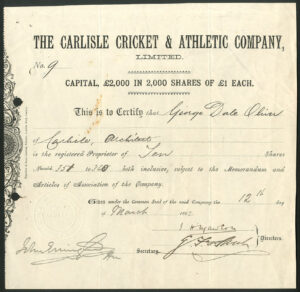 THE CARLISLE CRICKET & ATHLETIC COMPANY,
LIMITED.
No. 9
CAPITAL, £2,000 IN 2,000 SHARES OF £1 EACH.
This is to Certify that George Dale Oliver
of Carlisle, Architect
is the registered Proprietor of Ten Shares
Numbered 351 to 360 both inclusive, subject to the Memorandum and
Articles of Association of the Company.
Given under the Common Seal of the said Company the 12th day
of March
Directors.
Secretary.